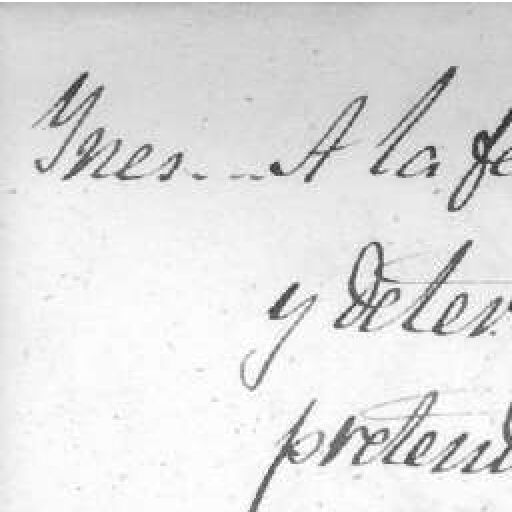 Ynes... A la fe
y deter
pretend